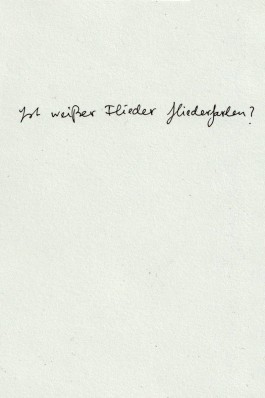 Ist weißer Flieder fliederfarben?